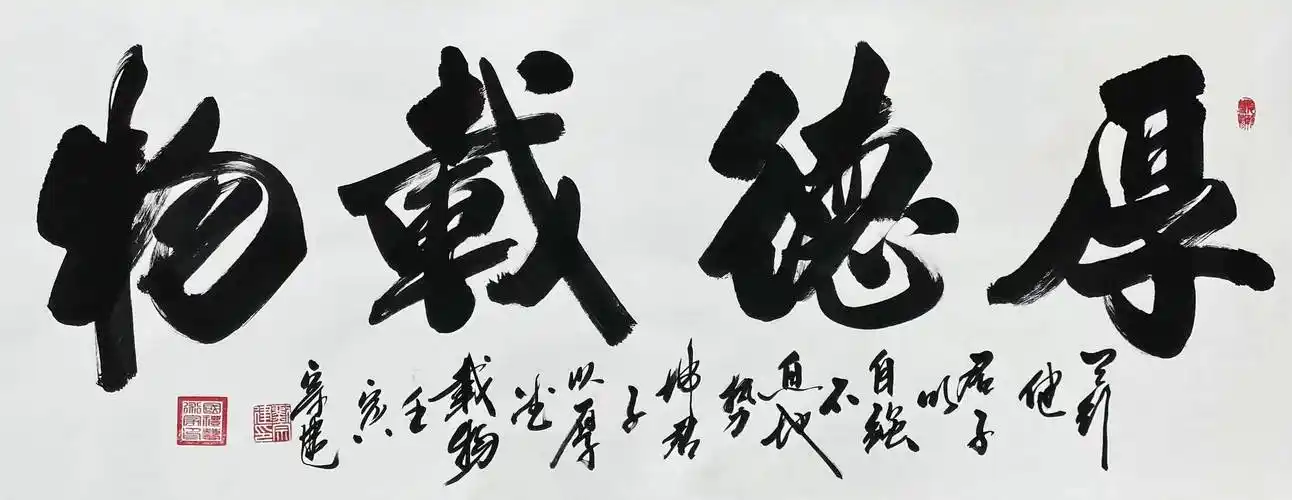 厚德載物
天行
健
君子
以
自強
不
息地
勢
坤君
子
以厚
德
載物
壬
寅
宗建